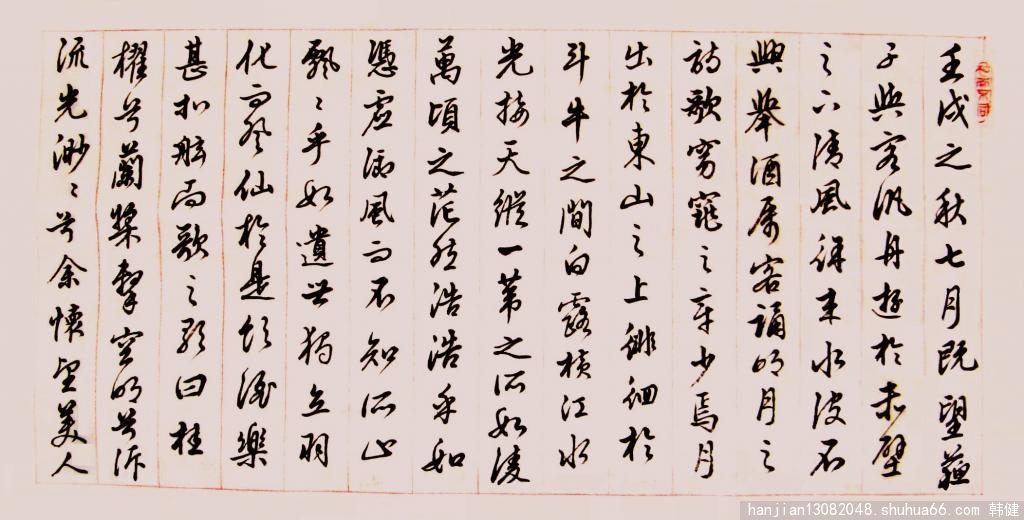 壬戌之秋七月既望蘇
子與客汎舟遊於赤壁
之下清風徐来水波不
興舉酒属客誦明月之
詩歌窈窕之章少焉月
出於東山之上徘徊於
斗牛之間白露横江水
光接天縱一葦之所如凌
萬頃之茫然浩浩乎如
憑虚御風而不知所止
飄〻乎如遺世獨立羽
化而登仙於是飲酒樂
甚扣舷而歌之歌曰桂
櫂兮蘭槳擊空明兮泝
流光渺〻兮余懷望美人
hanjian13082048.shuhua66.com 韩健